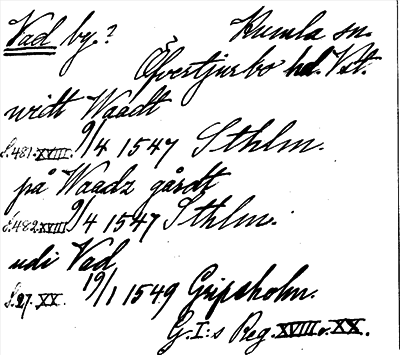 Vad by.? Kumla sn.
Öfvertjurbo hd. Vstm.
witt Waadt
S.481.XVIII. 9/4 1547 Sthlm.
på Waadz gårdt
S.482.XVIII 9/4 1547 Sthlm.
udi Vad
S.27. XX. 19/1 1549 Gripsholm.
G.I:s Reg. XVIII o. XX.